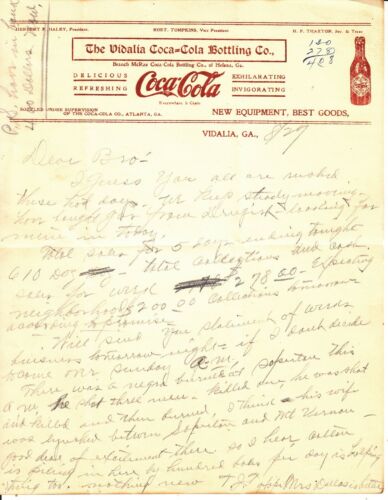 HERBERT F. HALEY, President. ROBT. TOMPKINS, Vice President H. P. THARTON, Sec. & Treas.
The Vidalia Coca=Cola Bottling Co.,
Branch McRae Coca-Cola Bottling Co., of Helena, Ga.
DELICIOUS
REFRESHING
Coca-Cola
EXHILARATING
INVIGORATING
BOTTLED UNDER SUPERVISION
OF THE COCA-COLA CO., ATLANTA, GA.
NEW EQUIPMENT, BEST GOODS,
VIDALIA, GA., 8/29
Dear Bro-
I guess you all are rushed
these hot days- We keep steady moving-
from today.
Total sales for 5 days ending tonight
610 Doz Total collections and cash
sales for week 278.50- Expecting
neighborhood $200.00 collections tomorrow
according to promise-
Will send you statement of weeks
business tomorrow night- if I don't decide
to come over Sunday a.m.
There was a negro burned at Soperton this
a.m., he shot three men- killed one, he was shot
and killed and then burned, I think- his wife
was lynched between Soperton and Mt Vernon-
good deal of excitement there so I hear cotton
is selling in here by hundred bales per day is helping
nothing new